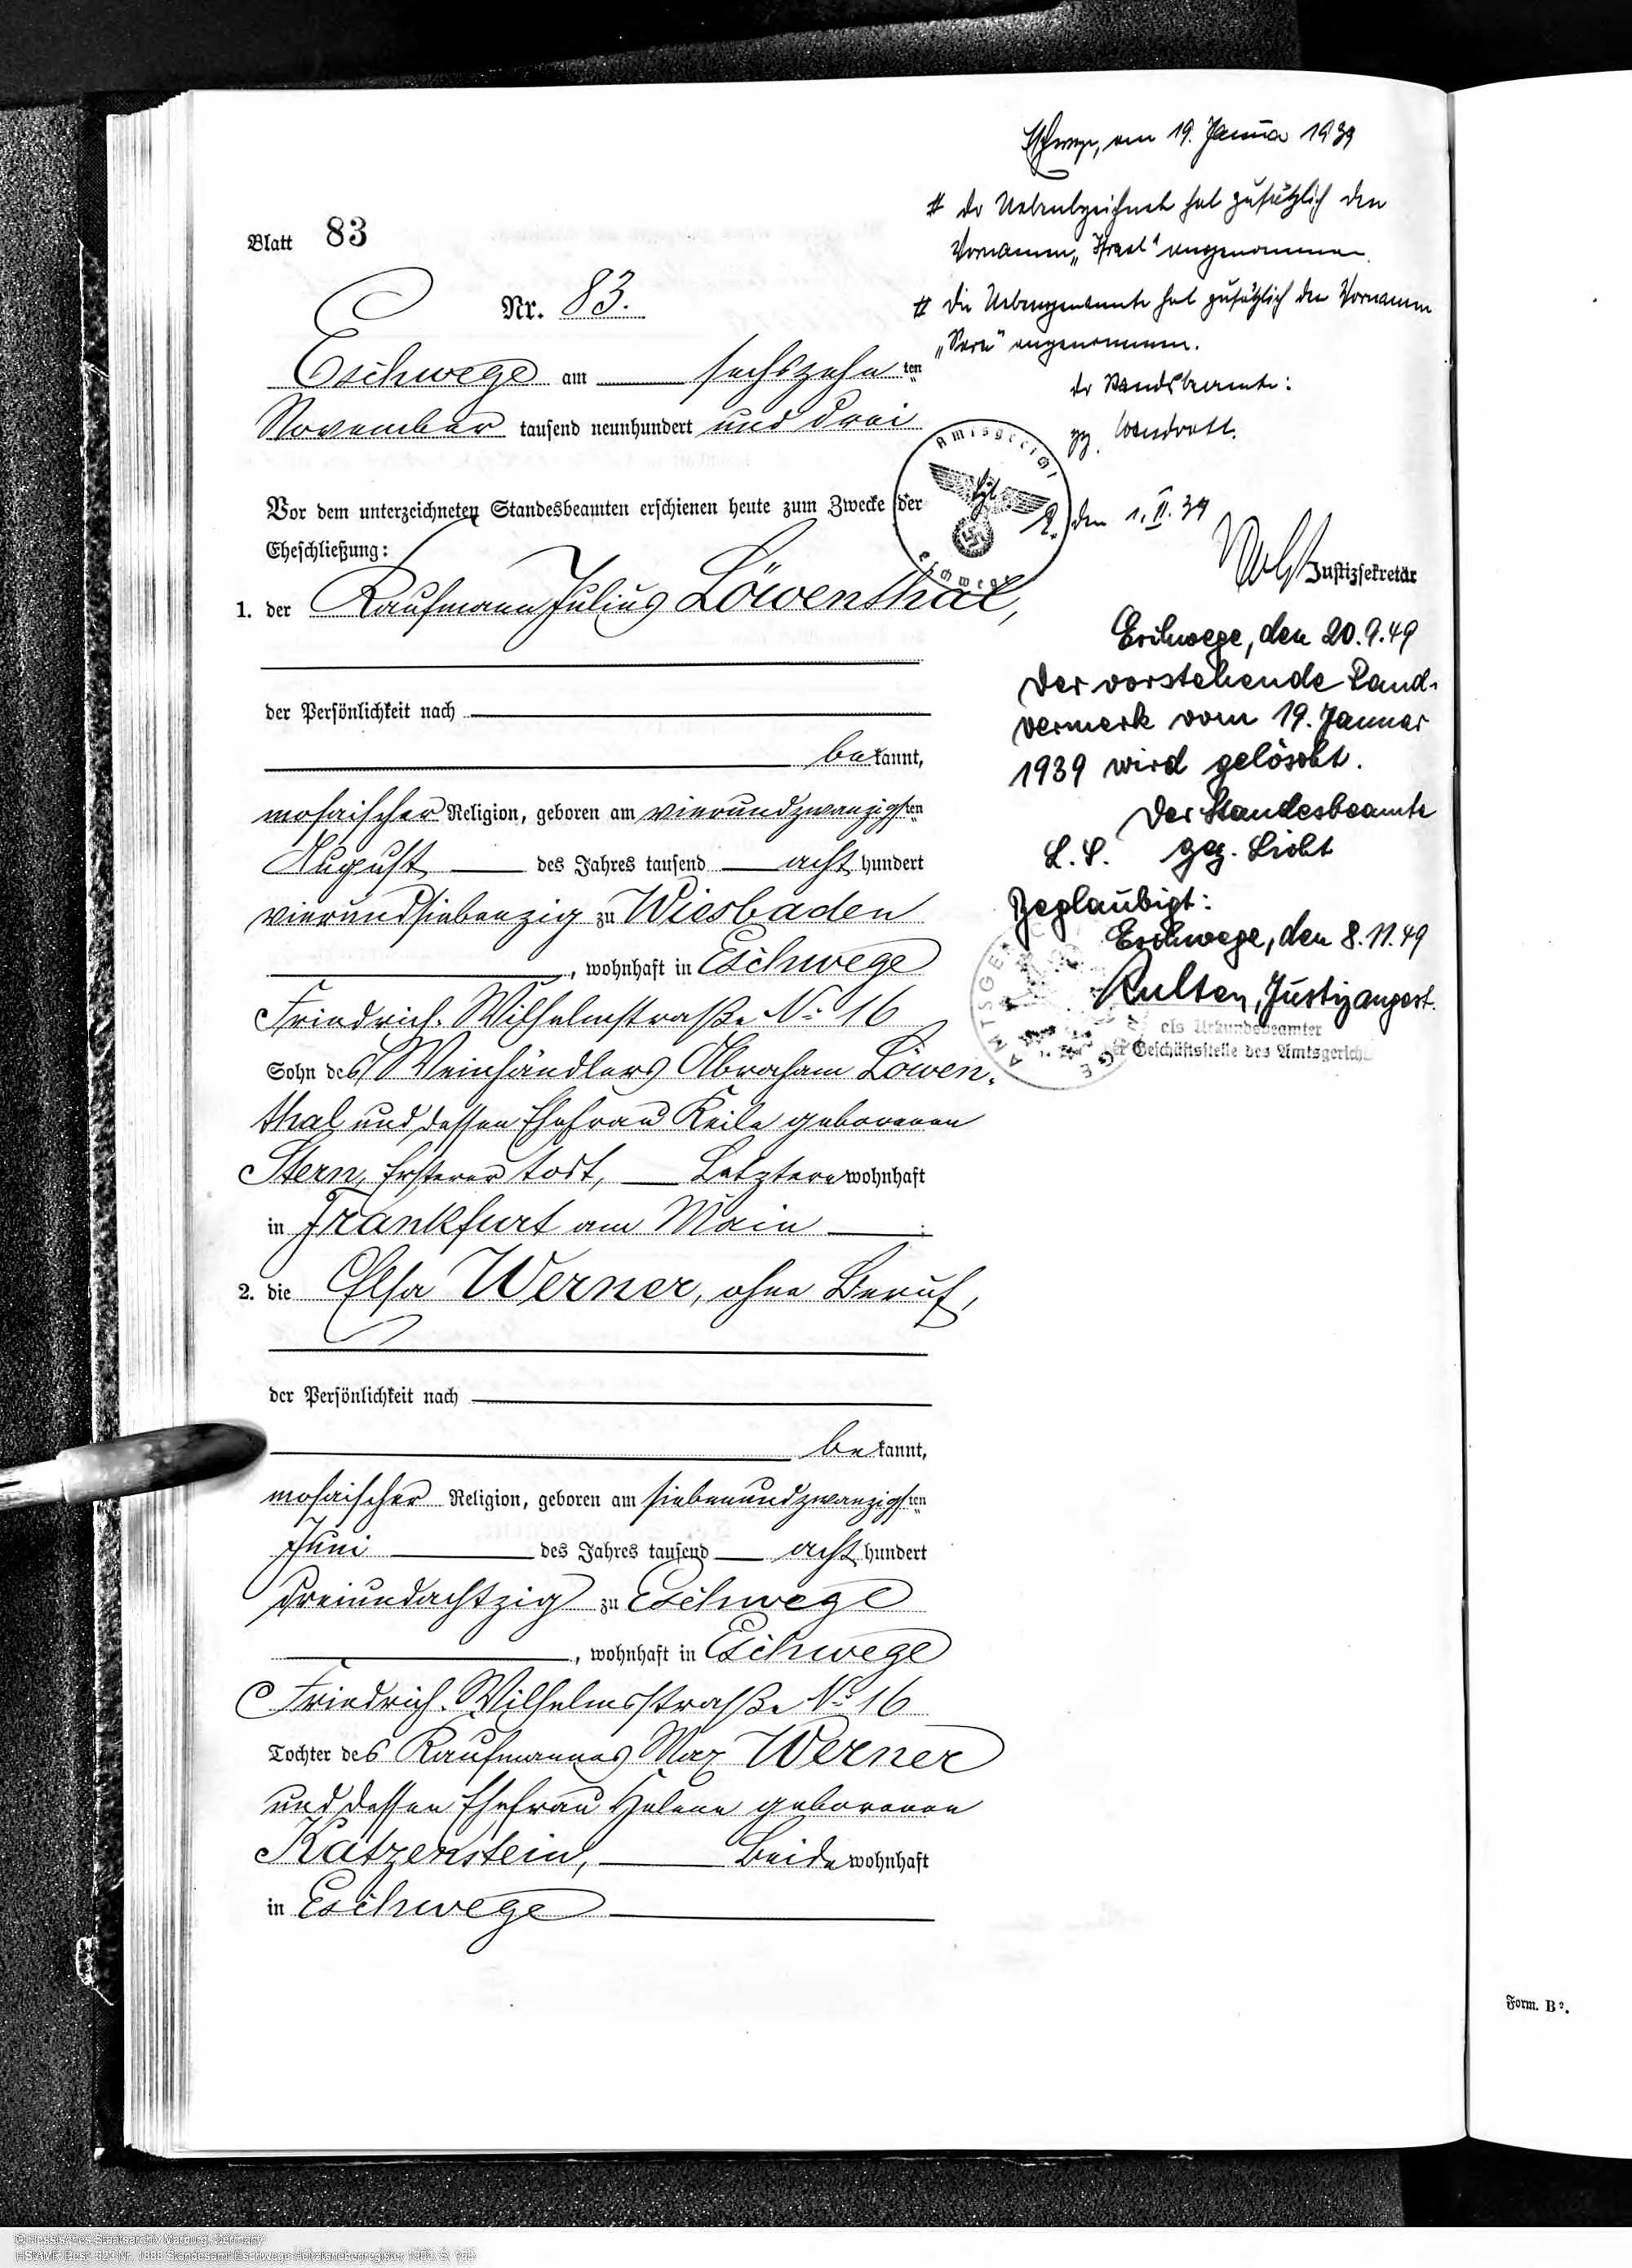 Blatt 83
Nr. 83.
Eschwege am sechszehn ten
November tausend neunhundert und drei
Vor dem unterzeichneten Standesbeamten erschienen heute zum Zwecke der
Eheschließung:
1. der Kaufmann Julius Löwenthal,
der Persönlichkeit nach
be kannt,
mosaischer Religion, geboren am vierundzwanzigsten
August des Jahres tausend acht hundert
vierundsiebenzig zu Wiesbaden
, wohnhaft in Eschwege
Friedrich-Wilhelmstraße No 16
Sohn des Weinhändlers Abraham Löwen-
thal und dessen Ehefrau Keile geborenen
Stern, Ersterer todt, Letztere wohnhaft
in Frankfurt am Main ;
2. die Elsa Werner, ohne Beruf,
der Persönlichkeit nach
be kannt,
mosaischer Religion, geboren am siebenundzwanzigsten
Juni des Jahres tausend acht hundert
dreiundachtzig zu Eschwege
, wohnhaft in Eschwege
Friedrich-Wilhelmsstraße No 16
Tochter des Kaufmannes Max Werner
und dessen Ehefrau Helene geborenen
Katzenstein, Beide wohnhaft
in Eschwege
Eschwege, am 19. Januar 1939
# der Nebenbezeichnete hat zusätzlich den
Vornamen „Israel“ angenommen.
# die Nebengenannte hat zusätzlich den Vornamen
„Sara“ angenommen.
der Standesbeamte:
gez.
Amtsgericht
Eschwege
den 1. II. 39
Justizsekretär
Eschwege, den 20.9.49
Der vorstehende Rand-
vermerk vom 19. Januar
1939 wird gelöscht.
Der Standesbeamte
L.S. gez. Licht
Beglaubigt:
Eschwege, den 8.11.49
Rulten, Justizangest.
als Urkundsbeamter
der Geschäftsstelle des Amtsgerichts
AMTSGE
Form. B 2.
© Hessisches Staatsarchiv Marburg, Germany